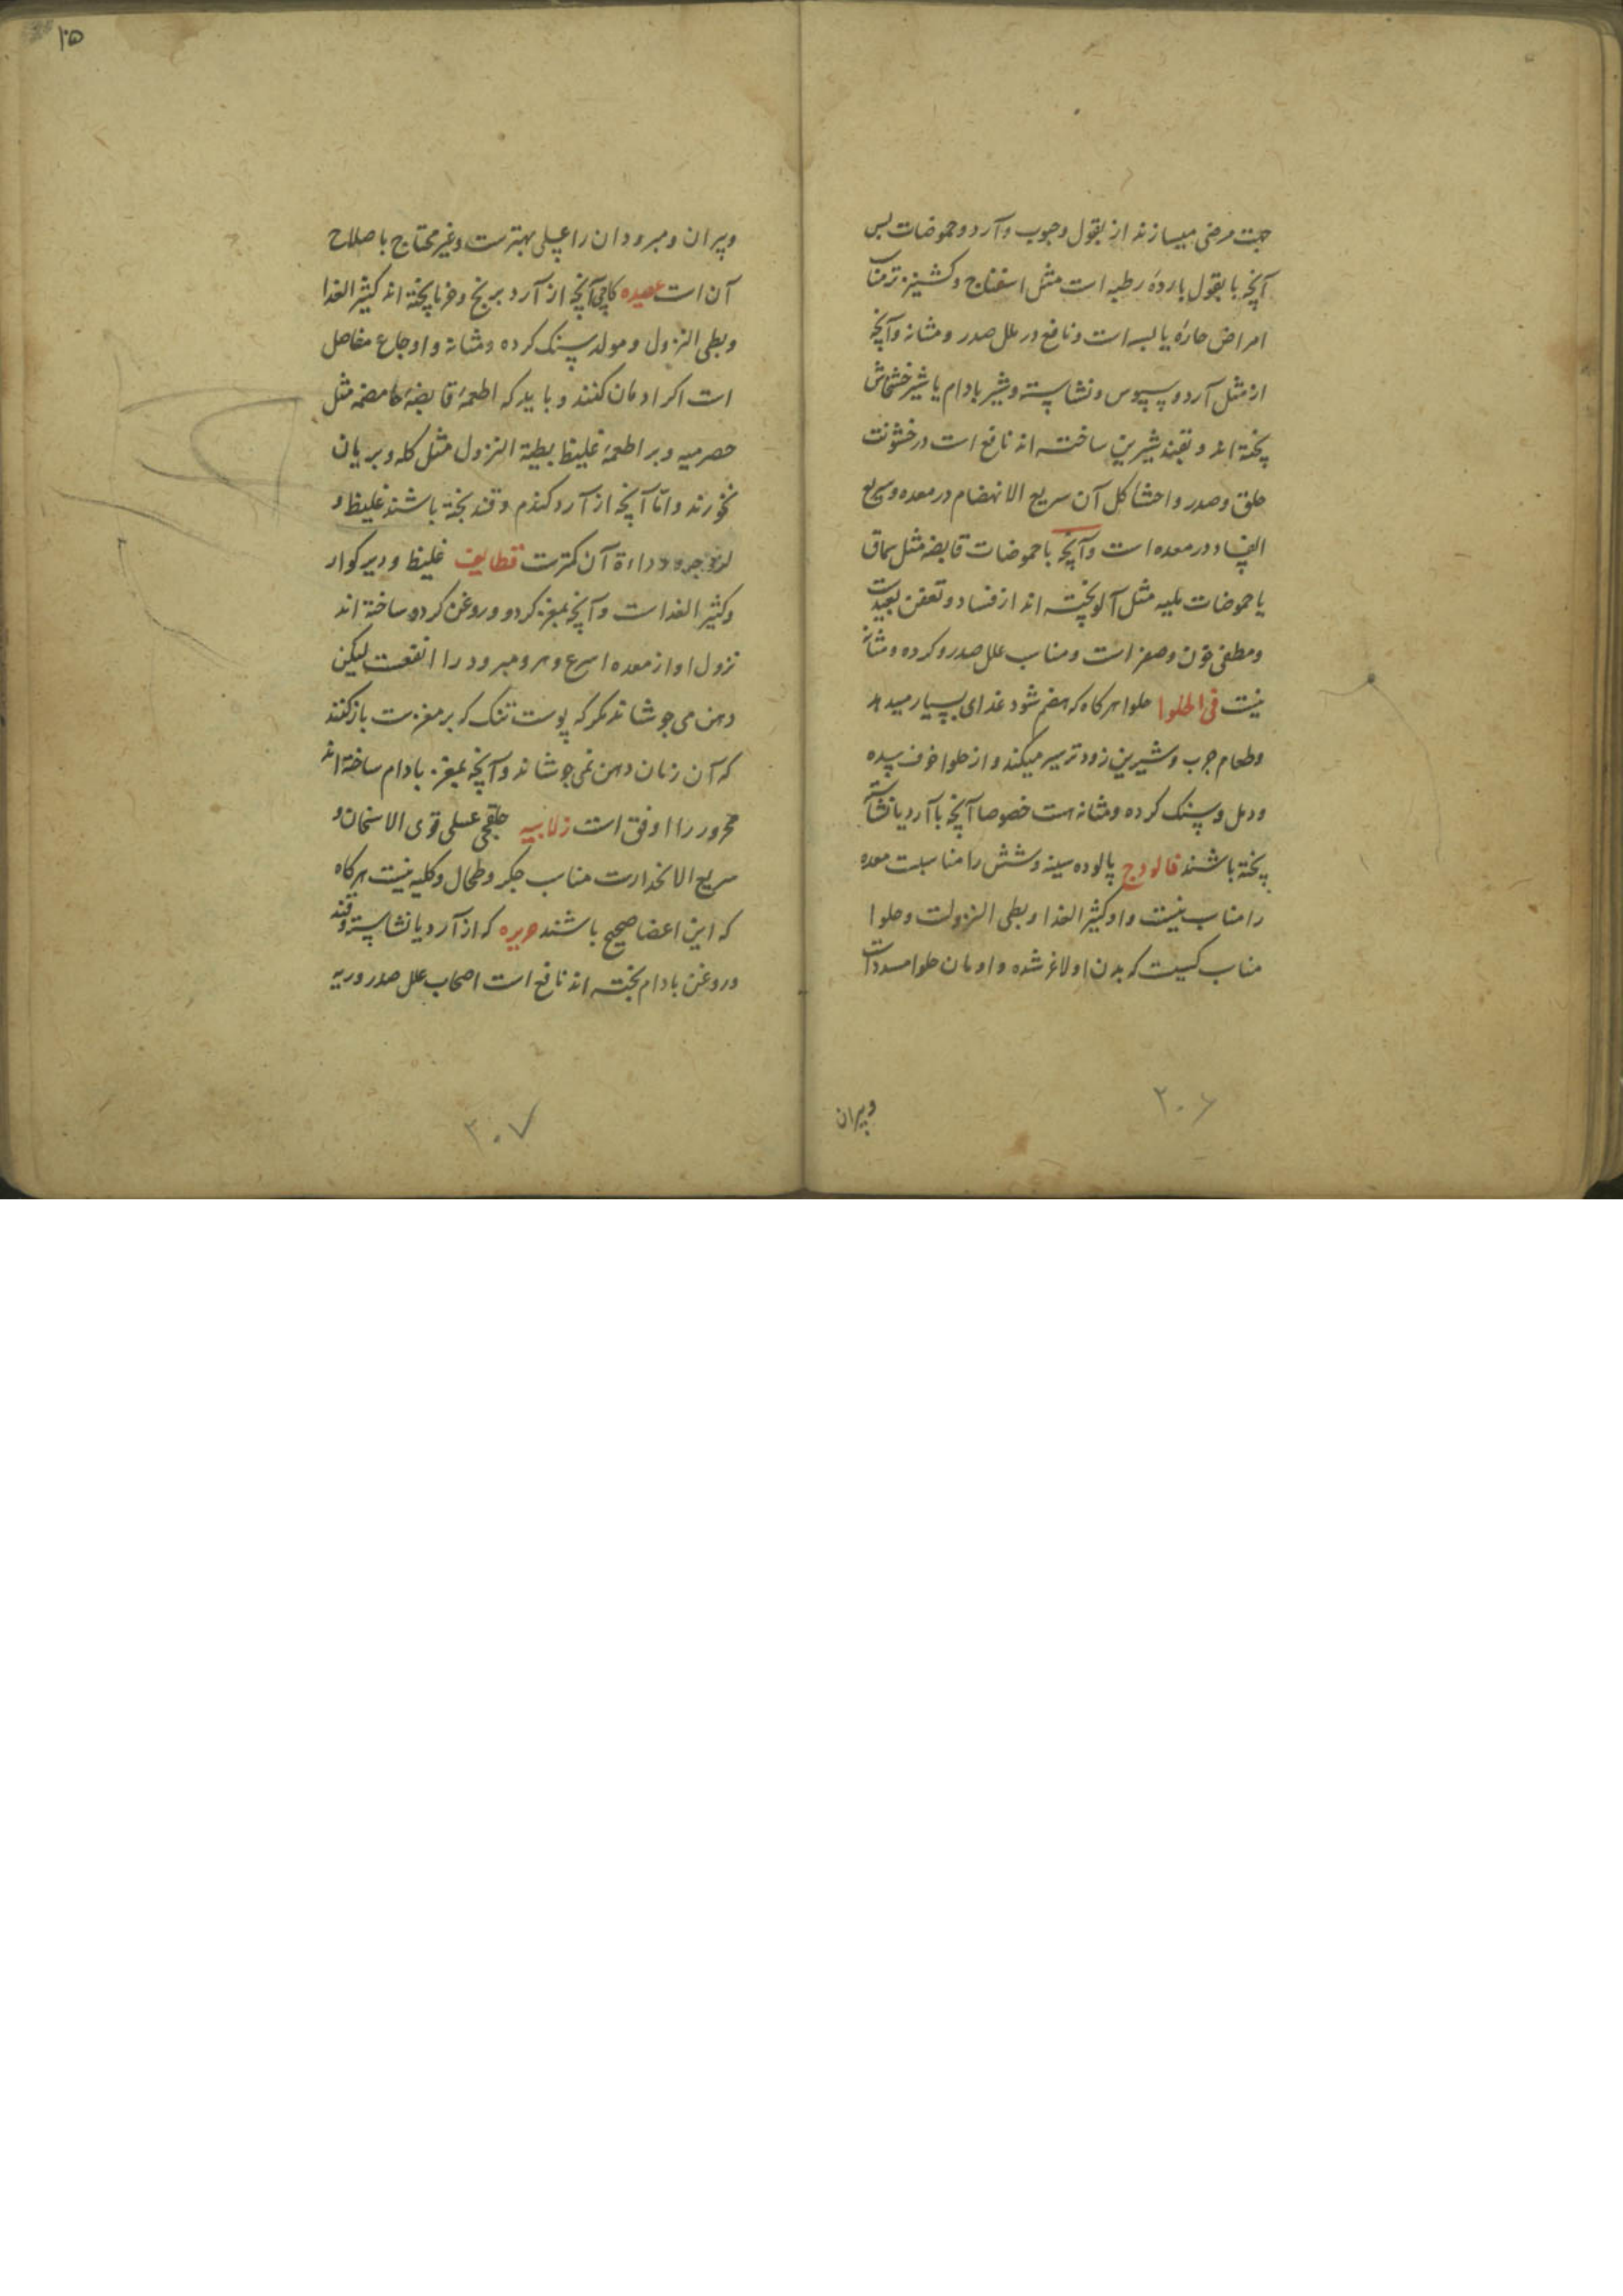 جهت مرضی میسازند از بقول وحبوب وآرد وحموضات پس
آنچه با بقول باردهٔ رطبه است مثل اسفناج وکشنیز تر مناسب
امراض حارهٔ یابسه است ونافع در علل صدر ومثانه وآنچه
از مثل آرد وسپوس ونشاسته وشیر بادام یا شیر خشخاش
پخته اند وبقند شیرین ساخته اند نافع است در خشونت
حلق وصدر واحشا کل آن سریع الانهضام در معده وسریع
الفساد در معده است وآنچه با حموضات قابضه مثل سماق
یا حموضات ملینه مثل آلو پخته اند از فساد وتعفن بعیدست
ومطفی خون وصفراست ومناسب علل صدر وکرده ومثانه
نیست فی الحلوا حلوا هرکاه که هضم شود غذای بسیار میدهد
وطعام چرب وشیرین زودتر سیر میکند واز حلوا خوف سده
ودمل وسنک کرده ومثانه هست خصوصا آنچه با آرد یا نشاسته
پخته باشند فالودج پالوده سینه وشش را مناسبت معده
را مناسب نیست واو کثیر الغذا وبطی النزولست وحلوا
مناسب کسیست که بدن او لاغر شده وادمان حلوا مسددات
وپیران
۳۰۶
۲۵
وپیران ومبرودان را عسلی بهترست وغیر محتاج باصلاح
آن است عصیده کاچی آنچه از آرد برنج وخرما پخته اند کثیر الغذا
وبطی النزول ومولد سنک کرده ومثانه واوجاع مفاصل
است اکر ادمان کنند وباید که اطعمهٔ قابضهٔ حامضه مثل
حصرمیه وبر اطعمهٔ غلیظ بطیة النزول مثل کله وبریان
نخورند وامّا آنچه از آرد کندم وقند پخته باشند غلیظ و
آن کمترست قطایف غلیظ ودیر کوار
وکثیر الغداست وآنچه بمغز کردو وروغن کردو ساخته اند
نزول او از معده اسرع ومرو مبرود را انفعست لیکن
دهن می جوشاند مکر که پوست تنک که بر مغزست باز کنند
که آن زمان دهن نمی جوشاند وآنچه بمغز بادام ساخته اند
محرور را اوفق است زلابیه حلقچی عسلی قوی الاسخان و
سریع الانحدارست مناسب جکر وطحال وکلیه نیست هرکاه
که این اعضا صحیح باشند حریره که از آرد یا نشاسته وقند
وروغن بادام پخته اند نافع است اصحاب علل صدر وریه
۳۰۷